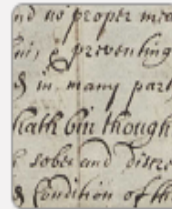 nd no proper mea
& preventing
in many part
hath bin though
sober and discre
& Condition of th